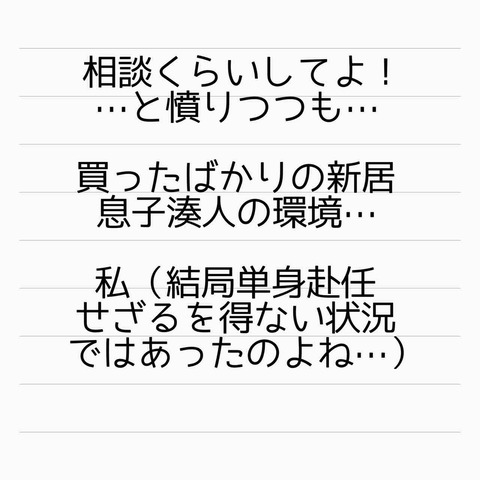 相談くらいしてよ！
…と憤りつつも…
買ったばかりの新居
息子湊人の環境…
私（結局単身赴任
せざるを得ない状況
ではあったのよね…）